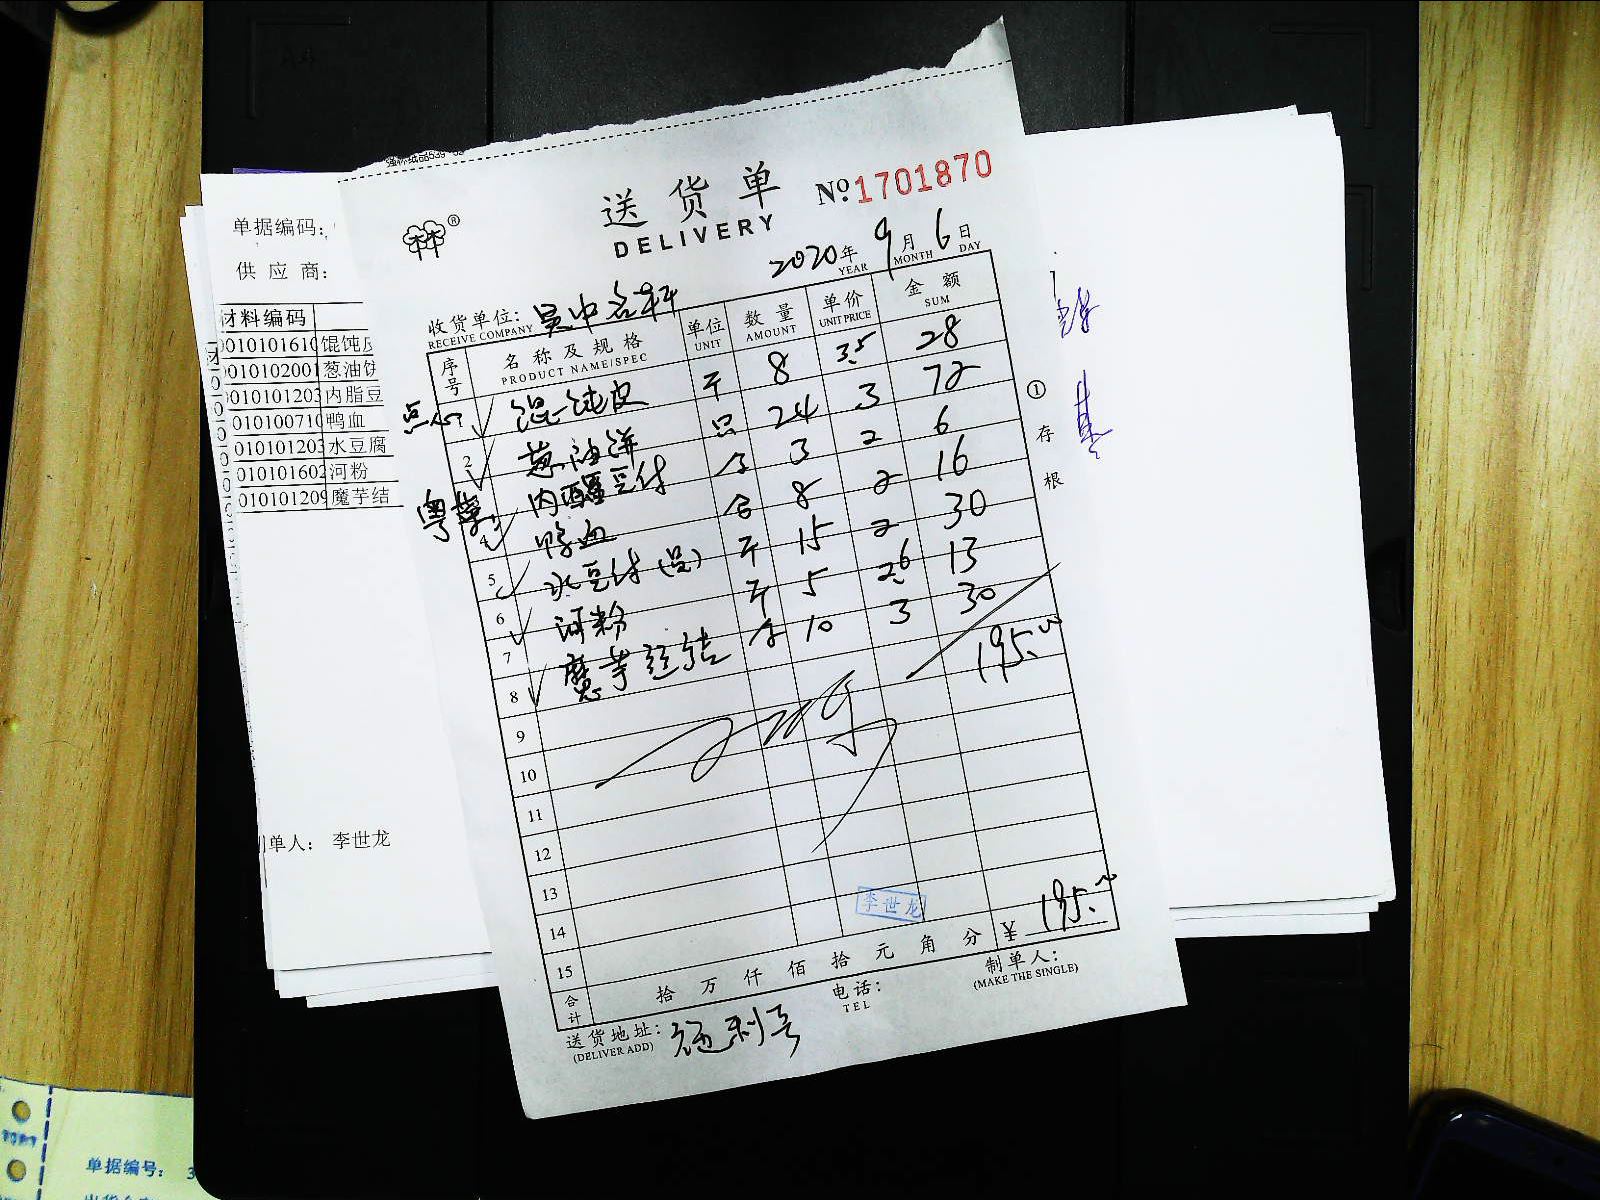 送货单
DELIVERY
№ 1701870
2020年 9月 6日
YEAR MONTH DAY
收货单位:吴中名轩
RECEIVE COMPANY
序号 名称及规格 单位 数量 单价 金额
PRODUCT NAME/SPEC UNIT AMOUNT UNIT PRICE SUM
点心 混沌皮 斤 8 3.5 28
2 葱油饼 只 24 3 72
内酯豆付 合 3 2 6
粤菜 4 鸭血 合 8 2 16
5 水豆付 斤 15 2 30
6 河粉 斤 5 2.6 13
7 魔芋结 10 3 30
8 195.00
9
10
11
12
13
14
15
李世龙
合计 拾 万 仟 佰 拾 元 角 分 ¥ 195.00
送货地址:
(DELIVER ADD)
电话:
TEL
制单人:
(MAKE THE SINGLE)
① 存根
单据编码:
供应商:
材料编码
0010101610 馄饨皮
0010102001 葱油饼
0010101203 内脂豆
010100710 鸭血
010101203 水豆腐
010101602 河粉
010101209 魔芋结
单人: 李世龙
单据编号: 3